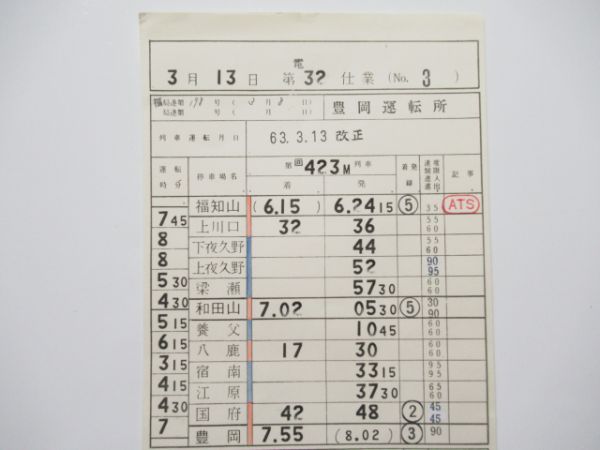 電
3月 13日 第 32 仕業 (No. 3 )
福局達第 198 号 ( 3月 8日)
局達第 号 ( 月 日)
豊岡運転所
列車運転月日 63.3.13 改正
運転時分 停車場名 第 回 423M 列車 着発線 速制進度 電限入出 記事
着 発
福知山 (6.15) 6.24 15 ⑤ 35 ATS
7 45
上川口 32 36 55 60
8
下夜久野 44 55 60
8
上夜久野 52 90 95
5 30
梁瀬 57 30 60 60
4 30
和田山 7.02 05 30 ⑤ 30 90
5 15
養父 10 45 60 60
6 15
八鹿 17 30 60 60
3 15
宿南 33 15 95 95
4 15
江原 37 30 65 60
4 30
国府 42 48 ② 45 45
7
豊岡 7.55 (8.02) ③ 90